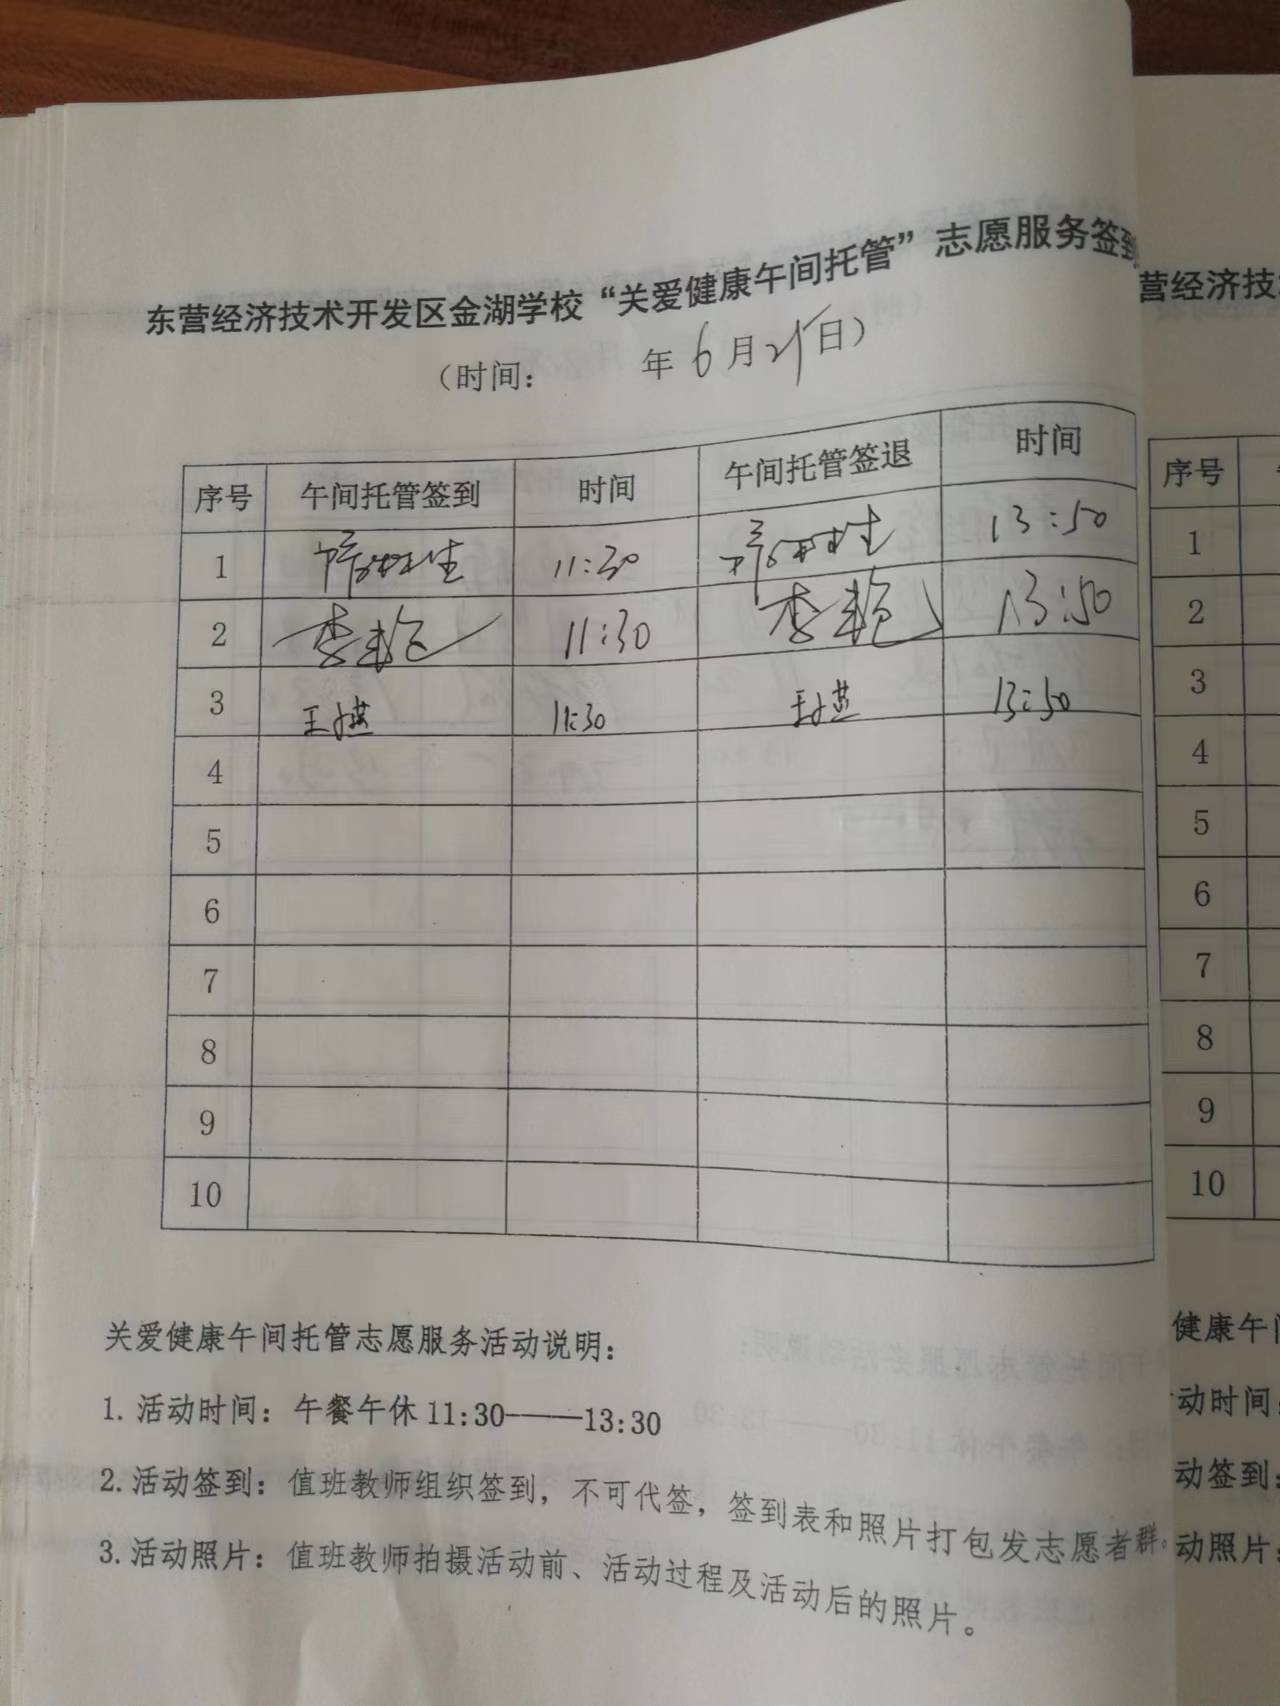 东营经济技术开发区金湖学校“关爱健康午间托管”志愿服务签到
（时间： 年6月21日）
序号 午间托管签到 时间 午间托管签退 时间
1 11:30 13:50
2 李艳 11:30 李艳 13:50
3 11:30 13:50
4
5
6
7
8
9
10
关爱健康午间托管志愿服务活动说明：
1. 活动时间：午餐午休 11:30——13:30
2. 活动签到：值班教师组织签到，不可代签，签到表和照片打包发志愿者群。
3. 活动照片：值班教师拍摄活动前、活动过程及活动后的照片。
营经济技
序号
1
2
3
4
5
6
7
8
9
10
健康午
动时间
动签到：
动照片：